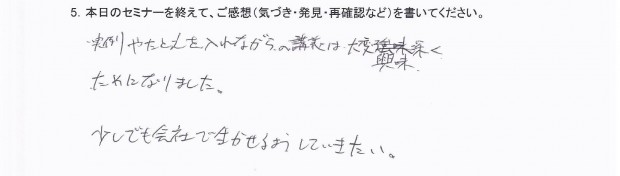 5. 本日のセミナーを終えて、ご感想(気づき・発見・再確認など)を書いてください。
実例やたとえを入れながらの講義は大変興味深く
ためになりました。
少しでも会社で生かせるようしていきたい。